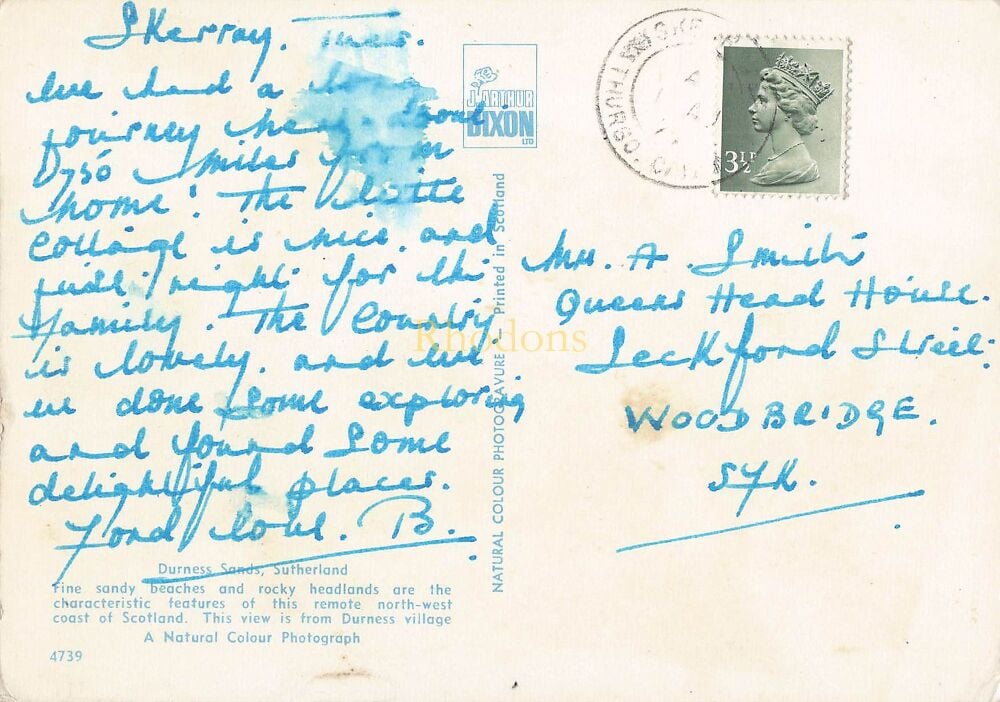 Skerray. Tues.
We had a
journey here about
750 miles from
home! The little
Cottage is nice, and
just right for the
family. The Country
is lovely, and we've
done some exploring
and found some
delightful places.
Fond love. B.
Durness Sands, Sutherland
Fine sandy beaches and rocky headlands are the
characteristic features of this remote north-west
coast of Scotland. This view is from Durness village
A Natural Colour Photograph
4739
J. ARTHUR
DIXON
LTD
NATURAL COLOUR PHOTOGRAVURE – Printed in Scotland
Rhodons
3½P
Mrs. A. Smith
Queens Head House.
Seckford Street.
WOODBRIDGE.
SFK.